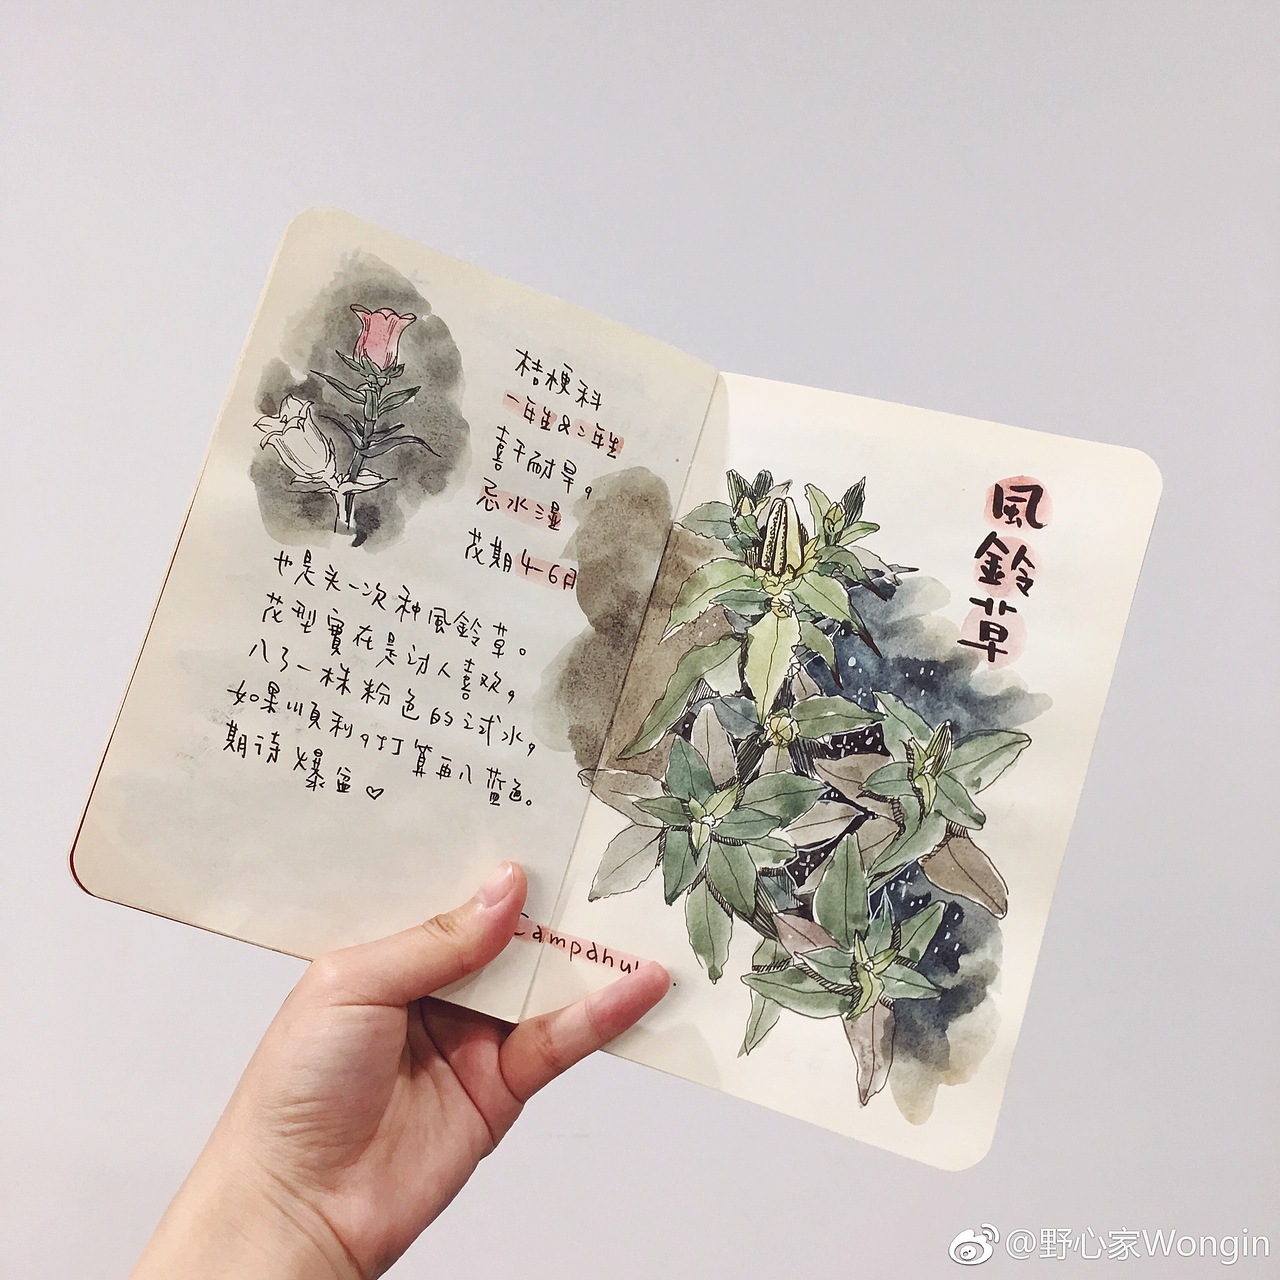 桔梗科
一年生&二年生
喜干耐旱。
忌水湿
花期4-6月
也是头一次种風鈴草。
花型實在是动人喜欢,
入了一株粉色的试水,
如果順利,打算再入藍色。
期待爆盆♡
風
鈴
草
@野心家Wongin